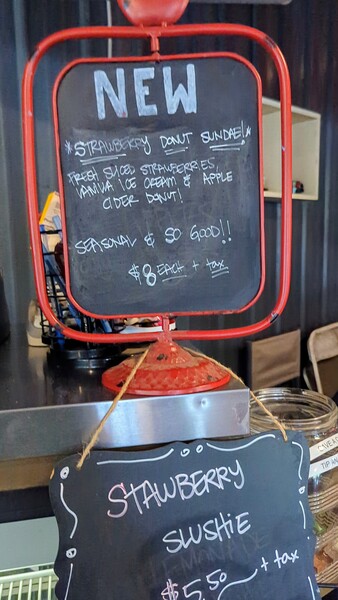 NEW
*STRAWBERRY DONUT SUNDAE!*
FRESH SLICED STRAWBERRIES,
VANILLA ICE CREAM & APPLE
CIDER DONUT!
SEASONAL & SO GOOD!!
$8 EACH + tax
STAWBERRY
SLUSHIE
$5.50 + tax